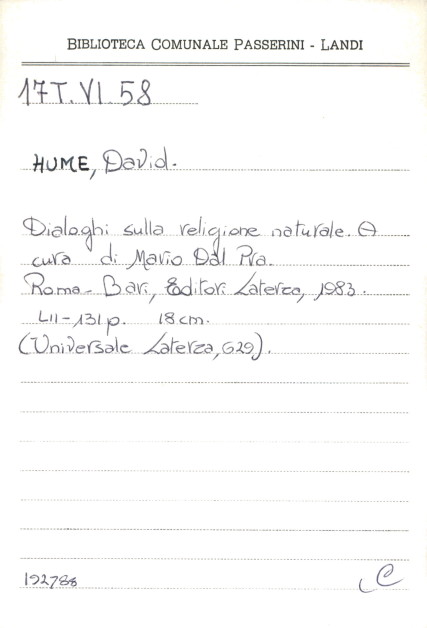 BIBLIOTECA COMUNALE PASSERINI - LANDI
17T.VI.58
HUME, David.
Dialoghi sulla religione naturale. A
cura di Mario Dal Pra.
Roma - Bari, Editori Laterza, 1983.
LII-131 p. 18 cm.
(Universale Laterza, 629).
192788
C